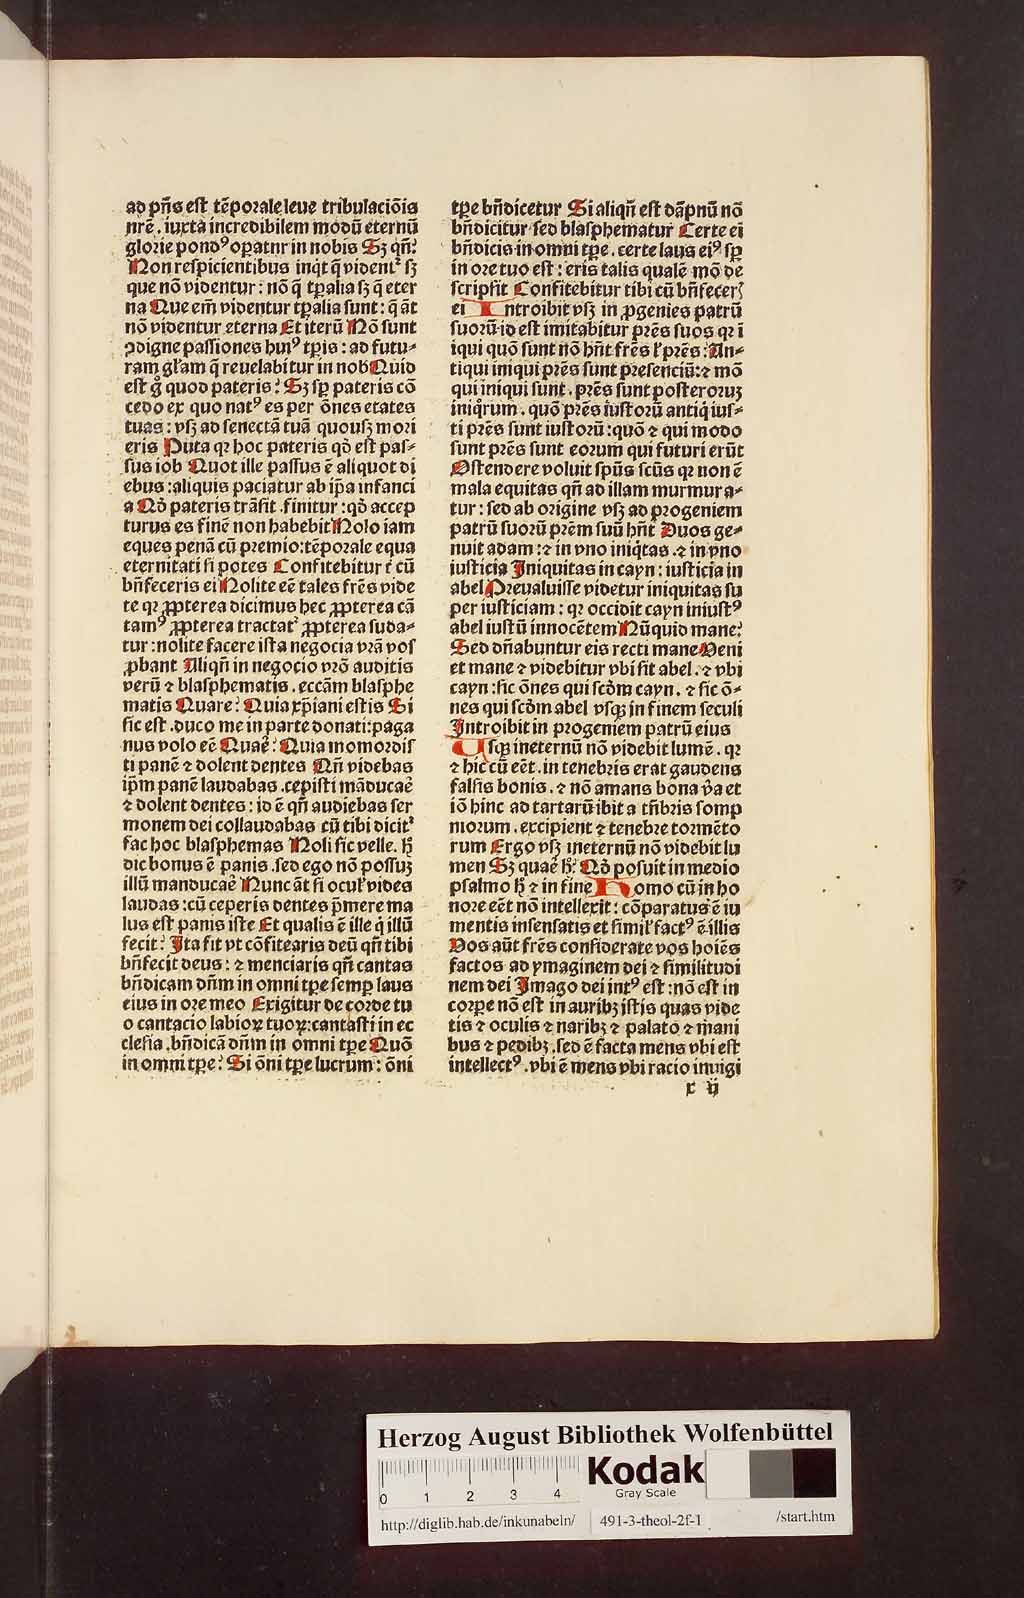 ad pn̄s est tēporale leue tribulaciōis
nrē . iuxta incredibilem modū eternū
glorie pondꝰ opatnr in nobis Sꝫ qn̄?
Non respicientibus inqͥt q̄ videntᷣ sꝫ
que nō videntur : nō q̄ tꝑalia sꝫ q̄ eter
na Que em̄ videntur tꝑalia sunt : q̄ āt
nō videntur eterna Et iterū Nō sunt
ꝯdigne passiones huiꝰ tꝑis : ad futu⸗
ram gl'am q̄ reuelabitur in nob Quid
est g̊ quod pateris? Sꝫ sꝑ pateris cō
cedo ex quo natꝰ es per ōnes etates
tuas : vsꝫ ad senectā tuā quousꝫ mori
eris Puta qꝛ hoc pateris qd̓ est pas⸗
sus iob Quot ille passus ē aliquot di
ebus : aliquis paciatur ab ip̄a infanci
a Qd̓ pateris trāsit .finitur : qd̓ accep
turus es finē non habebit Nolo iam
eques penā cū premio : tēporale equa
eternitati si potes Confitebitur t̓ cū
bn̄feceris ei Nolite eē tales frēs vide
te qꝛ ꝓpterea dicimus hec ꝓpterea cā
tamꝰ ꝓpterea tractatᷣ ꝓpterea suda⸗
tur : nolite facere ista negocia vrā vos
ꝓbant Aliqn̄ in negocio vrō auditis
verū ⁊ blasphematis . eccām blasphe
matis Quare? Quia xp̄iani estis Si
sic est . duco me in parte donati : paga
nus volo eē Quaē? Quia momordis
ti panē ⁊ dolent dentes Qn̄ videbas
ip̄m panē laudabas . cepisti māducaē
⁊ dolent dentes : id ē qn̄ audiebas ser
monem dei collaudabas cū tibi dicitᷣ
fac hoc blasphemas Noli sic velle . hꝭ
dic bonus ē panis . sed ego nō possuꝫ
illū manducaē Nunc āt si ocul' vides
laudas : cū ceperis dentes p̄mere ma
lus est panis iste Et qualis ē ille q̇ illū
fecit? Ita fit vt cōfitearis deū qn̄ tibi
bn̄fecit deus : ⁊ menciaris qn̄ cantas
bn̄dicam dn̄m in omni tꝑe semꝑ laus
eius in ore meo Exigitur de corde tu
o cantacio labioꝝ tuoꝝ : cantasti in ec
clesia . bn̄dicā dn̄m in omni tꝑe Quō
in omni tꝑe? Si ōni tꝑe lucrum : ōni
tꝑe bn̄dicetur Si aliqn̄ est dāpnū nō
bn̄dicitur sed blasphematur Certe ei
bn̄dicis in omni tꝑe . certe laus eiꝰ sꝑ
in ore tuo est : eris talis qualē mō de
scripsit Confitebitur tibi cū bn̄fecerꝭ
ei Introibit vsꝫ in ꝓgenies patrū
suorū id est imitabitur prēs suos qꝛ ī
iqui quō sunt nō hn̄t frēs l' prēs : An⸗
tiqui iniqui prēs sunt presenciū : ⁊ mō
qui iniqui sunt . prēs sunt posteroruꝫ
iniqͦrum . quō prēs iustorū antiqͥ ius⸗
ti prēs sunt iustorū : quō ⁊ qui modo
sunt prēs sunt eorum qui futuri erūt
Ostendere voluit spūs scūs qꝛ non ē
mala equitas qn̄ ad illam murmura⸗
tur : sed ab origine vsꝫ ad progeniem
patrū suorū prēm suū hn̄t Duos ge⸗
nuit adam : ⁊ in vno iniqͥtas . ⁊ in vno
iusticia Iniquitas in cayn : iusticia in
abel Preualuisse videtur iniquitas su
per iusticiam : qꝛ occidit cayn iniustꝰ
abel iustū innocētem Nūquid mane?
Sed dn̄abuntur eis recti mane Veni
et mane ⁊ videbitur vbi sit abel . ⁊ vbi
cayn : sic ōnes qui scd̓m cayn . ⁊ sic ō⸗
nes qui scd̓m abel vsqꝫ in finem seculi
Introibit in progeniem patrū eius
Usqꝫ ineternū nō videbit lumē . qꝛ
⁊ hic cū eēt . in tenebris erat gaudens
falsis bonis . ⁊ nō amans bona v̓a et
iō hinc ad tartarū ibit a tn̄bris somp
niorum . excipient ⁊ tenebre tormēto
rum Ergo vsꝫ ineternū nō videbit lu
men Sꝫ quaē hꝭ? Qd̓ posuit in medio
psalmo hꝭ ⁊ in fine Homo cū in ho
nore eēt nō intellexit : cōparatus ē iu
mentis insensatis et simil' factꝰ ē illis
Vos aūt frēs considerate vos hoiēs
factos ad ymaginem dei ⁊ similitudi
nem dei Imago dei intꝰ est : nō est in
corpe nō est in auribꝫ istis quas vide
tis ⁊ oculis ⁊ naribꝫ ⁊ palato ⁊ mani
bus ⁊ pedibꝫ . sed ē facta mens vbi est
intellectꝰ . vbi ē mens vbi racio inuigi
x ij
Herzog August Bibliothek Wolfenbüttel
0 1 2 3 4
Kodak
Gray Scale
http://diglib.hab.de/inkunabeln/ 491-3-theol-2f-1 /start.htm